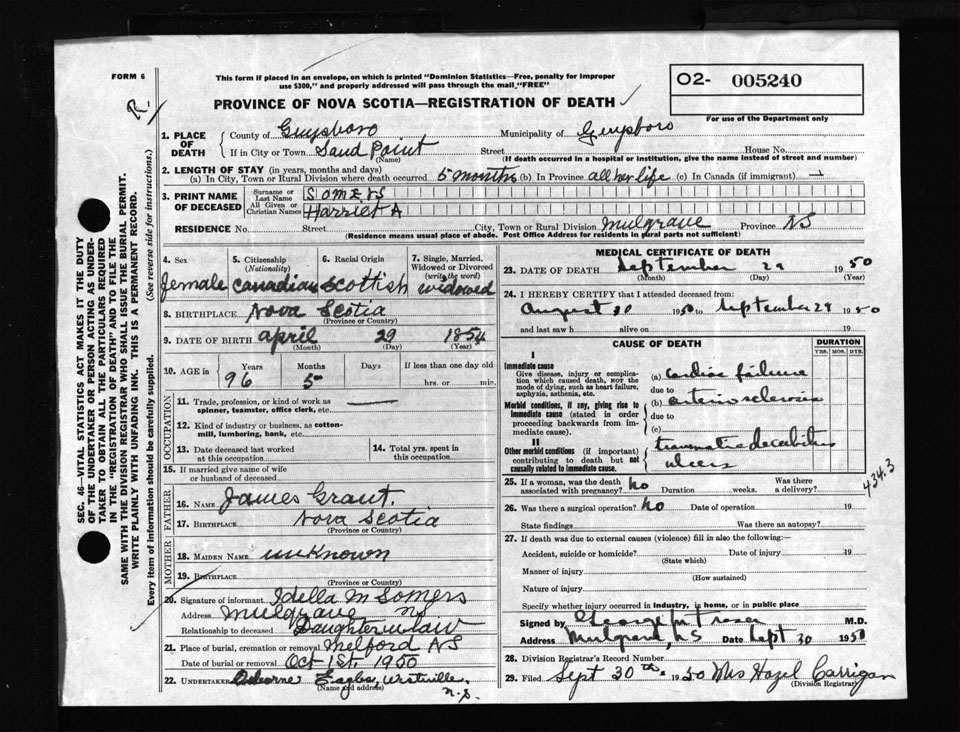 FORM 6
This form if placed in an envelope, on which is printed "Dominion Statistics—Free, penalty for improper
use $300," and properly addressed will pass through the mail "FREE"
O2- 005240
For use of the Department only
R.
PROVINCE OF NOVA SCOTIA—REGISTRATION OF DEATH
SEC. 46—VITAL STATISTICS ACT MAKES IT THE DUTY
OF THE UNDERTAKER OR PERSON ACTING AS UNDER-
TAKER TO OBTAIN ALL THE PARTICULARS REQUIRED
IN THE "REGISTRATION OF DEATH" AND TO FILE THE
SAME WITH THE DIVISION REGISTRAR WHO SHALL ISSUE THE BURIAL PERMIT.
WRITE PLAINLY WITH UNFADING INK. THIS IS A PERMANENT RECORD.
Every item of information should be carefully supplied. (See reverse side for instructions.)
1. PLACE OF DEATH County of Guysboro Municipality of Guysboro
If in City or Town Sand Point Street House No.
(Name) (If death occurred in a hospital or institution, give the name instead of street and number)
2. LENGTH OF STAY (in years, months and days)
(a) In City, Town or Rural Division where death occurred 5 months (b) In Province all her life (c) In Canada (if immigrant)
3. PRINT NAME OF DECEASED Surname or Last Name SOMERS
All Given or Christian Names Harriet A
RESIDENCE No. Street City, Town or Rural Division Mulgrave Province NS
(Residence means usual place of abode. Post Office Address for residents in rural parts not sufficient)
4. Sex 5. Citizenship (Nationality) 6. Racial Origin 7. Single, Married, Widowed or Divorced (write the word)
female Canadian Scottish widowed
8. BIRTHPLACE Nova Scotia
(Province or Country)
9. DATE OF BIRTH april 29 1854
(Month) (Day) (Year)
10. AGE IN Years Months Days If less than one day old
96 5 hrs. or min.
OCCUPATION
11. Trade, profession, or kind of work as
spinner, teamster, office clerk, etc.
12. Kind of industry or business, as cotton-
mill, lumbering, bank, etc.
13. Date deceased last worked
at this occupation
14. Total yrs. spent in
this occupation
15. If married give name of wife
or husband of deceased
FATHER
16. Name James Grant.
17. Birthplace Nova Scotia
(Province or Country)
MOTHER
18. Maiden Name unknown
19. Birthplace
(Province or Country)
20. Signature of informant Idella M Somers
Address Mulgrave NS
Relationship to deceased Daughter in law
21. Place of burial, cremation or removal Melford NS
Date of burial or removal Oct 1st, 1950
22. UNDERTAKER Osborne Eagles, Westville,
(Name and address) N.S.
MEDICAL CERTIFICATE OF DEATH
23. DATE OF DEATH September 29 1950
(Month) (Day) (Year)
24. I HEREBY CERTIFY that I attended deceased from:
August 30 1950 to September 29 1950
and last saw h alive on 19
CAUSE OF DEATH DURATION
YRS. MOS. DYS.
I
Immediate cause
Give disease, injury or compli-
cation which caused death, NOT the
mode of dying, such as heart failure,
asphyxia, asthenia, etc.
(a) cardiac failure
due to
Morbid conditions, if any, giving rise to
immediate cause (stated in order
proceeding backwards from im-
mediate cause).
(b) arterio sclerosis
due to
(c)
II
Other morbid conditions (if important)
contributing to death but not
causally related to immediate cause.
traumatic decubitus
ulcers
434.3
25. If a woman, was the death
associated with pregnancy? no Duration weeks. Was there
a delivery?
26. Was there a surgical operation? no Date of operation 19
State findings Was there an autopsy?
27. If death was due to external causes (violence) fill in also the following:—
Accident, suicide or homicide? Date of injury 19
(State which)
Manner of injury
(How sustained)
Nature of injury
Specify whether injury occurred in industry, in home, or in public place
Signed by George M Fraser M.D.
Address Mulgrave, NS Date Sept 30 1950
28. Division Registrar's Record Number
29. Filed Sept 30th 1950 Mrs Hazel Carrigan
(Division Registrar)